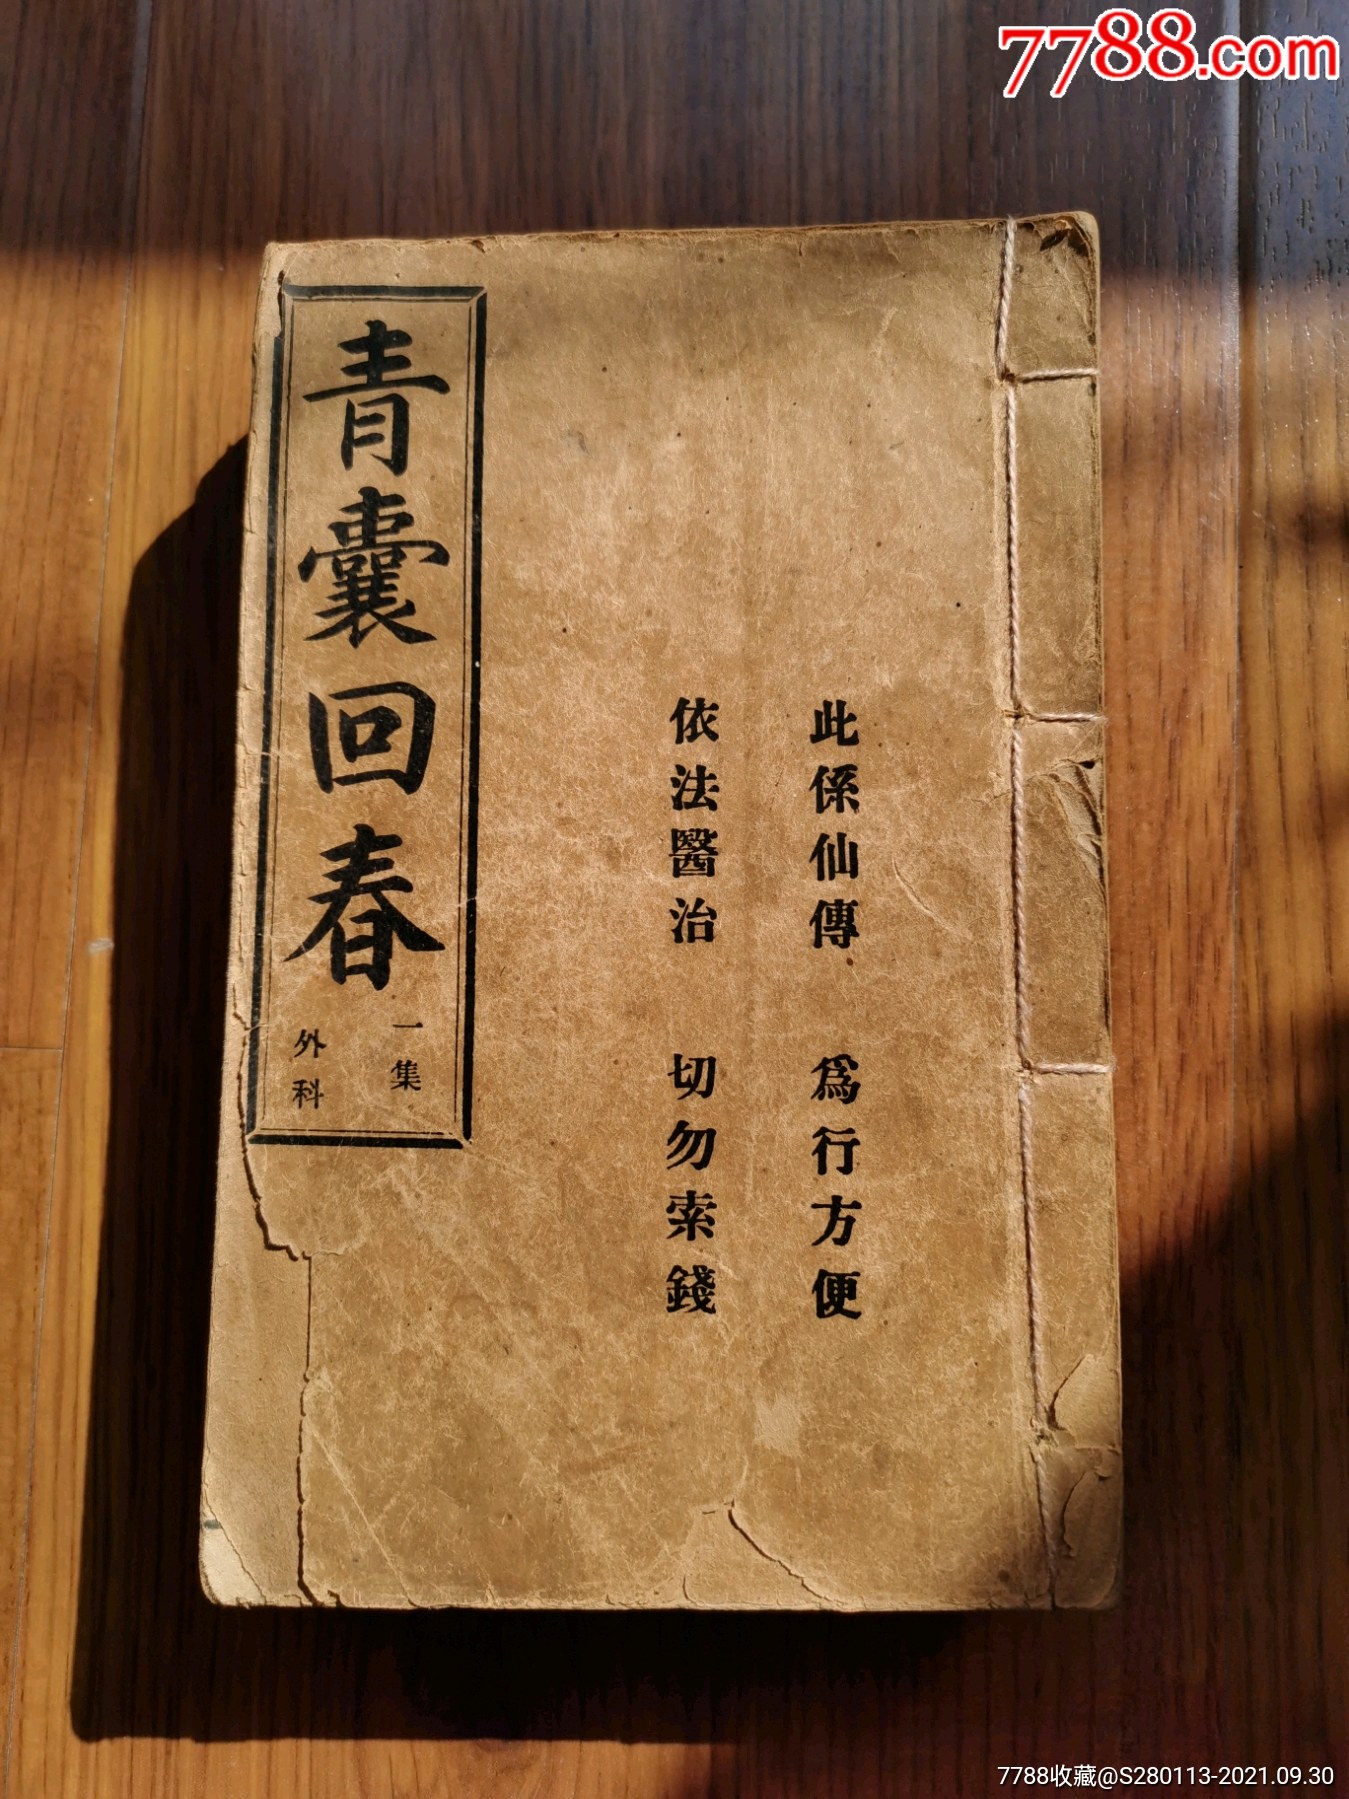 7788.com
此係仙傳 爲行方便
依法醫治 切勿索錢
青囊回春
一集
外科
7788收藏@S280113-2021.09.30